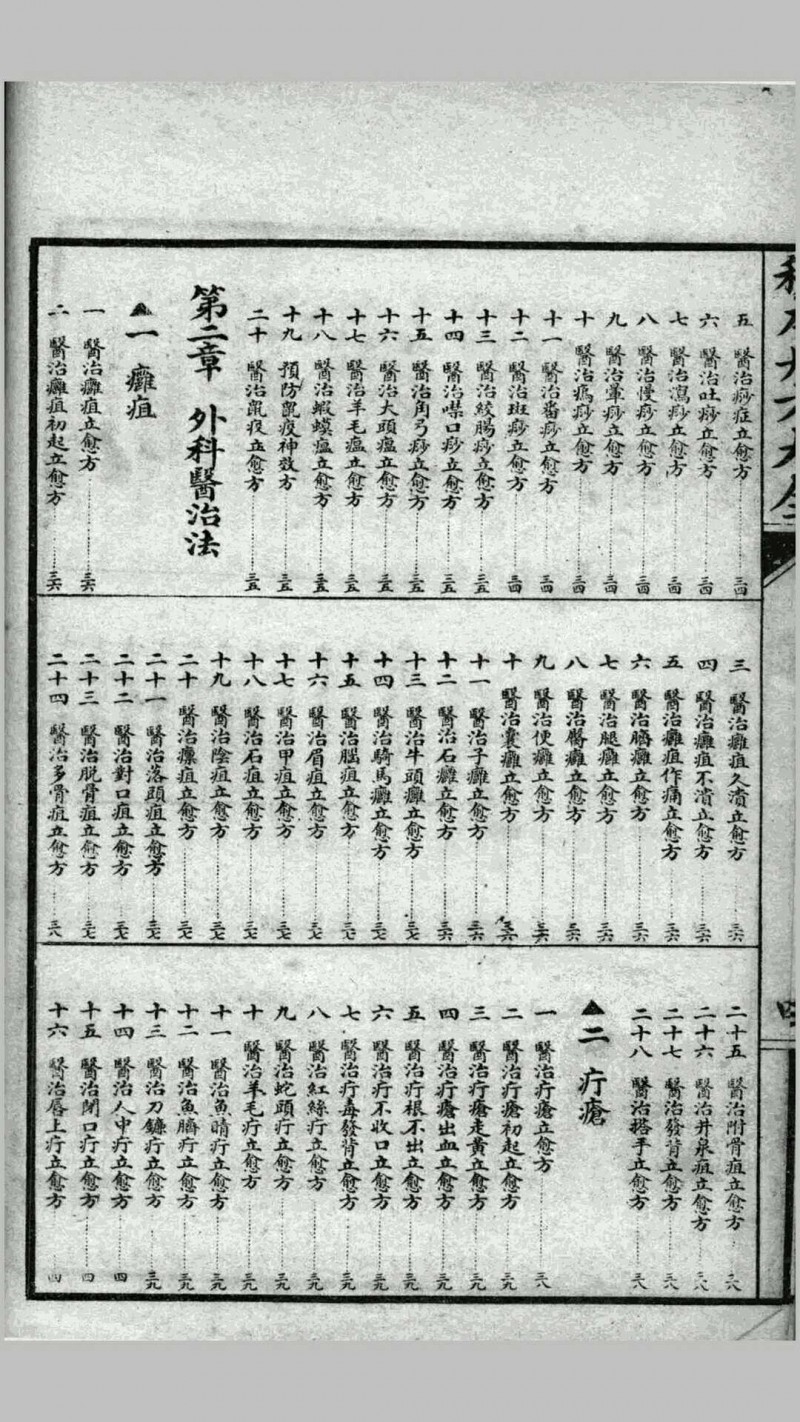 五　醫治痧症立愈方…三四
六　醫治吐痧立愈方…三四
七　醫治瀉痧立愈方…三四
八　醫治慢痧立愈方…三四
九　醫治暈痧立愈方…三四
十　醫治瘑痧立愈方…三四
十一　醫治番痧立愈方…三四
十二　醫治斑痧立愈方…三四
十三　醫治絞腸痧立愈方…三五
十四　醫治噤口痧立愈方…三五
十五　醫治角弓痧立愈方…三五
十六　醫治大頭瘟立愈方…三五
十七　醫治羊毛瘟立愈方…三五
十八　醫治蝦蟆瘟立愈方…三五
十九　預防鼠疫神效方…三五
二十　醫治鼠疫立愈方…三五
第二章　外科醫治法
▲一　癰疽
一　醫治癰疽立愈方…三六
二　醫治癰疽初起立愈方…三六
三　醫治癰疽久潰立愈方…三六
四　醫治癰疽不潰立愈方…三六
五　醫治癰疽作痛立愈方…三六
六　醫治臍癰立愈方…三六
七　醫治腿癰立愈方…三六
八　醫治臀癰立愈方…三六
九　醫治便癰立愈方…三六
十　醫治囊癰立愈方…三六
十一　醫治子癰立愈方…三六
十二　醫治石癰立愈方…三六
十三　醫治牛頭癰立愈方…三七
十四　醫治騎馬癰立愈方…三七
十五　醫治腦疽立愈方…三七
十六　醫治眉疽立愈方…三七
十七　醫治甲疽立愈方…三七
十八　醫治石疽立愈方…三七
十九　醫治陰疽立愈方…三七
二十　醫治瘭疽立愈方…三七
二十一　醫治落頭疽立愈方…三七
二十二　醫治對口疽立愈方…三七
二十三　醫治脫骨疽立愈方…三七
二十四　醫治多骨疽立愈方…三八
二十五　醫治附骨疽立愈方…三八
二十六　醫治井泉疽立愈方…三八
二十七　醫治發背立愈方…三八
二十八　醫治搭手立愈方…三八
▲二　疔瘡
一　醫治疔瘡立愈方…三八
二　醫治疔瘡初起立愈方…三九
三　醫治疔瘡走黃立愈方…三九
四　醫治疔瘡出血立愈方…三九
五　醫治疔根不出立愈方…三九
六　醫治疔不收口立愈方…三九
七　醫治疔毒發背立愈方…三九
八　醫治紅絲疔立愈方…三九
九　醫治蛇頭疔立愈方…三九
十　醫治羊毛疔立愈方…三九
十一　醫治魚睛疔立愈方…三九
十二　醫治魚臍疔立愈方…三九
十三　醫治刀鐮疔立愈方…三九
十四　醫治人中疔立愈方…四
十五　醫治閉口疔立愈方…四
十六　醫治唇上疔立愈方…四